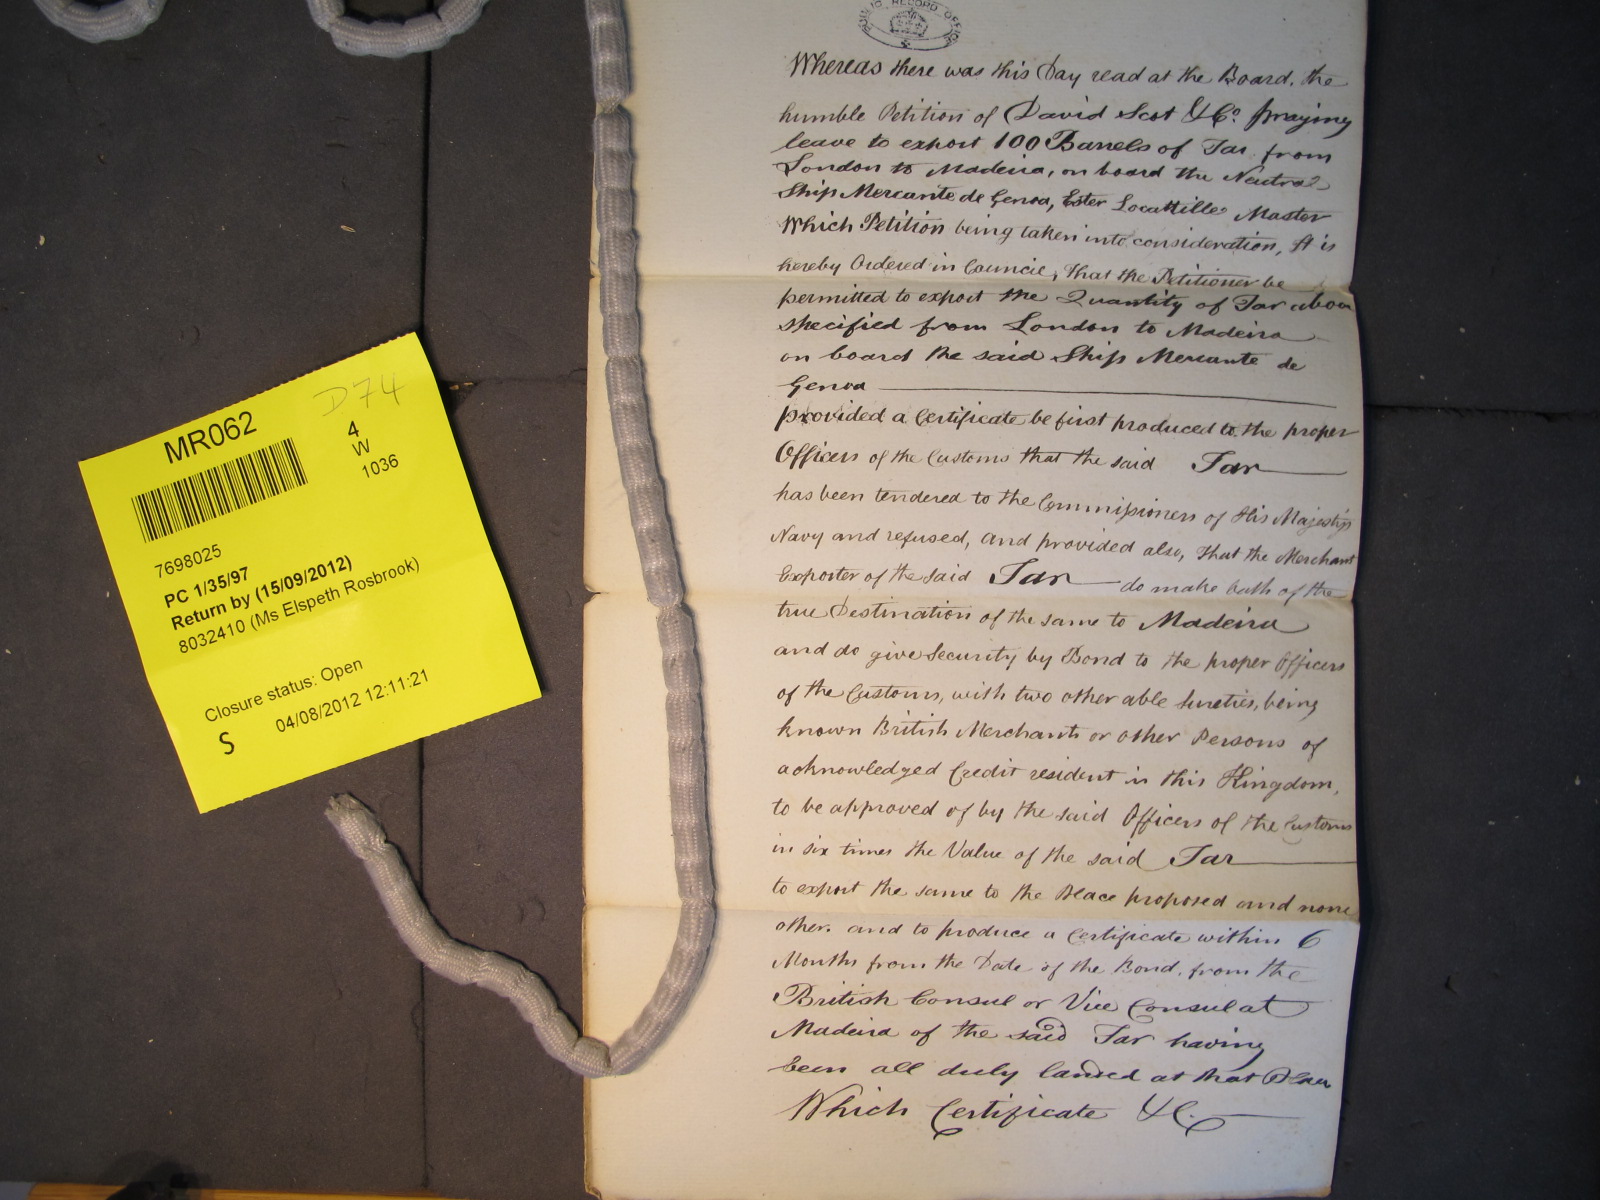 PUBLIC RECORD OFFICE
Whereas there was this Day read at the Board, the
humble Petition of David Scot & Co. praying
leave to export 100 Barrels of Tar from
London to Madeira, on board the Neutral
Ship Mercante de Genoa, Ester Locattille Master
Which Petition being taken into consideration, It is
hereby Ordered in Council, that the Petitioner be
permitted to export the Quantity of Tar above
specified from London to Madeira
on board the said Ship Mercante de
Genoa
provided a Certificate be first produced to the proper
Officers of the Customs that the said Tar
has been tendered to the Commissioners of His Majesty's
Navy and refused, and provided also, that the Merchant
Exporter of the said Tar do make Oath of the
true Destination of the same to Madeira
and do give Security by Bond to the proper Officers
of the Customs, with two other able Sureties, being
known British Merchants or other Persons of
acknowledged Credit resident in this Kingdom,
to be approved of by the said Officers of the Customs
in six times the Value of the said Tar
to export the same to the Place proposed and none
other. and to produce a Certificate within 6
Months from the Date of the Bond, from the
British Consul or Vice Consul at
Madeira of the said Tar having
been all duly landed at that Place
Which Certificate &c.
D74
MR062
4
W
1036
7698025
PC 1/35/97
Return by (15/09/2012)
8032410 (Ms Elspeth Rosbrook)
Closure status: Open
04/08/2012 12:11:21
S